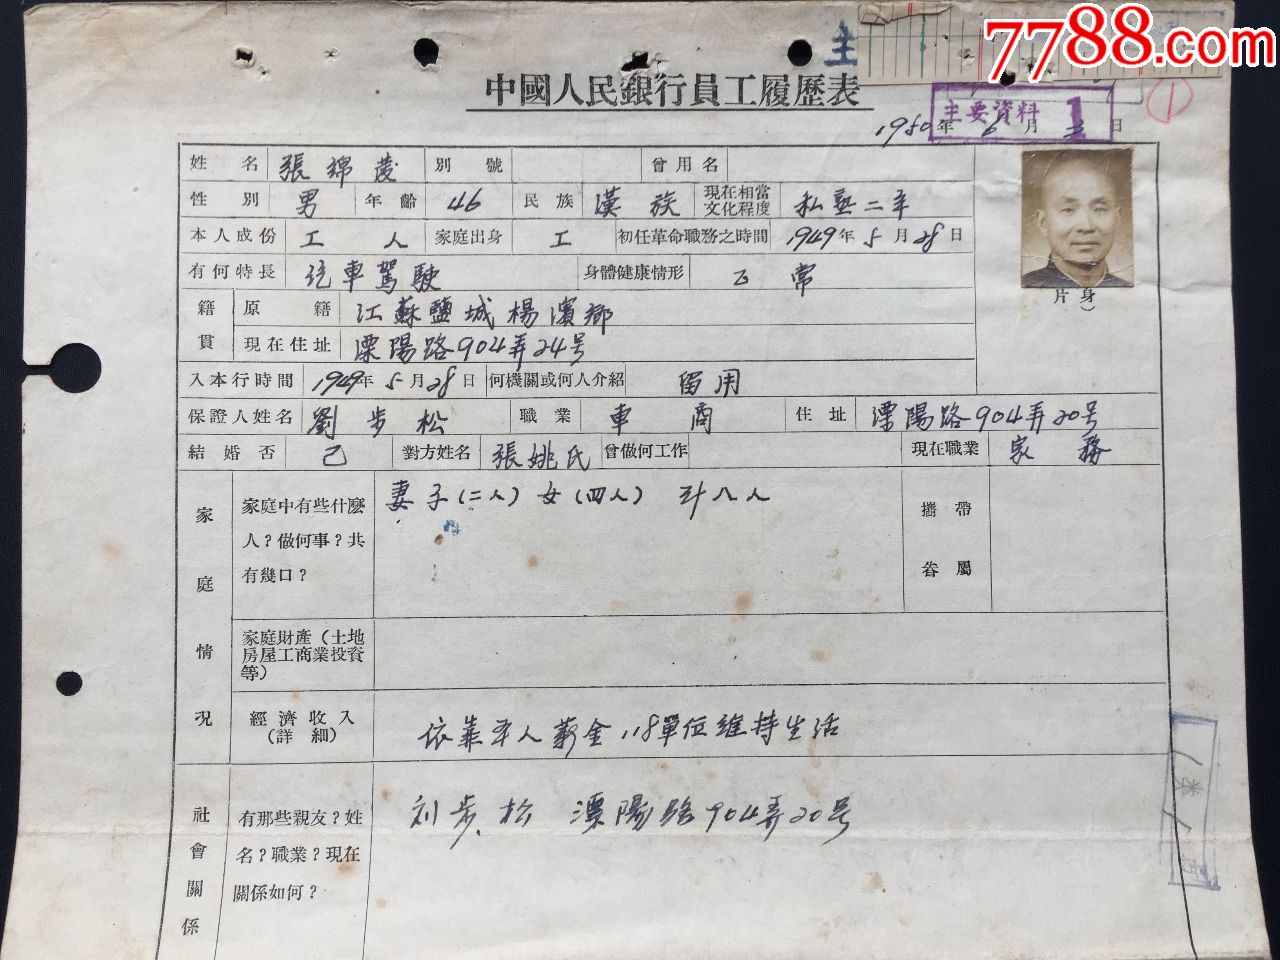 7788.com
主
中國人民銀行員工履歷表
主要資料 1
1
1950年6月 日
姓名 張錦 別號 曾用名
性別 男 年齡 46 民族 漢族 現在相當文化程度 私塾二年
本人成份 工人 家庭出身 工 初任革命職務之時間 1949年5月28日
有何特長 汽車駕駛 身體健康情形 正常
身
片）
籍貫 原籍 江蘇鹽城楊濱鄉
現在住址 溧陽路904弄24号
入本行時間 1949年5月28日 何機關或何人介紹 留用
保證人姓名 劉步松 職業 車商 住址 溧陽路904弄20号
結婚否 已 對方姓名 張姚氏 曾做何工作 現在職業 家務
家庭情況
家庭中有些什麼人？做何事？共有幾口？ 妻子(二人) 女(四人) 計八人 攜帶眷屬
家庭財產（土地房屋工商業投資等）
經濟收入（詳細） 依靠本人薪金118單位維持生活
社會關係
有那些親友？姓名？職業？現在關係如何？ 刘步松 溧陽路904弄20号